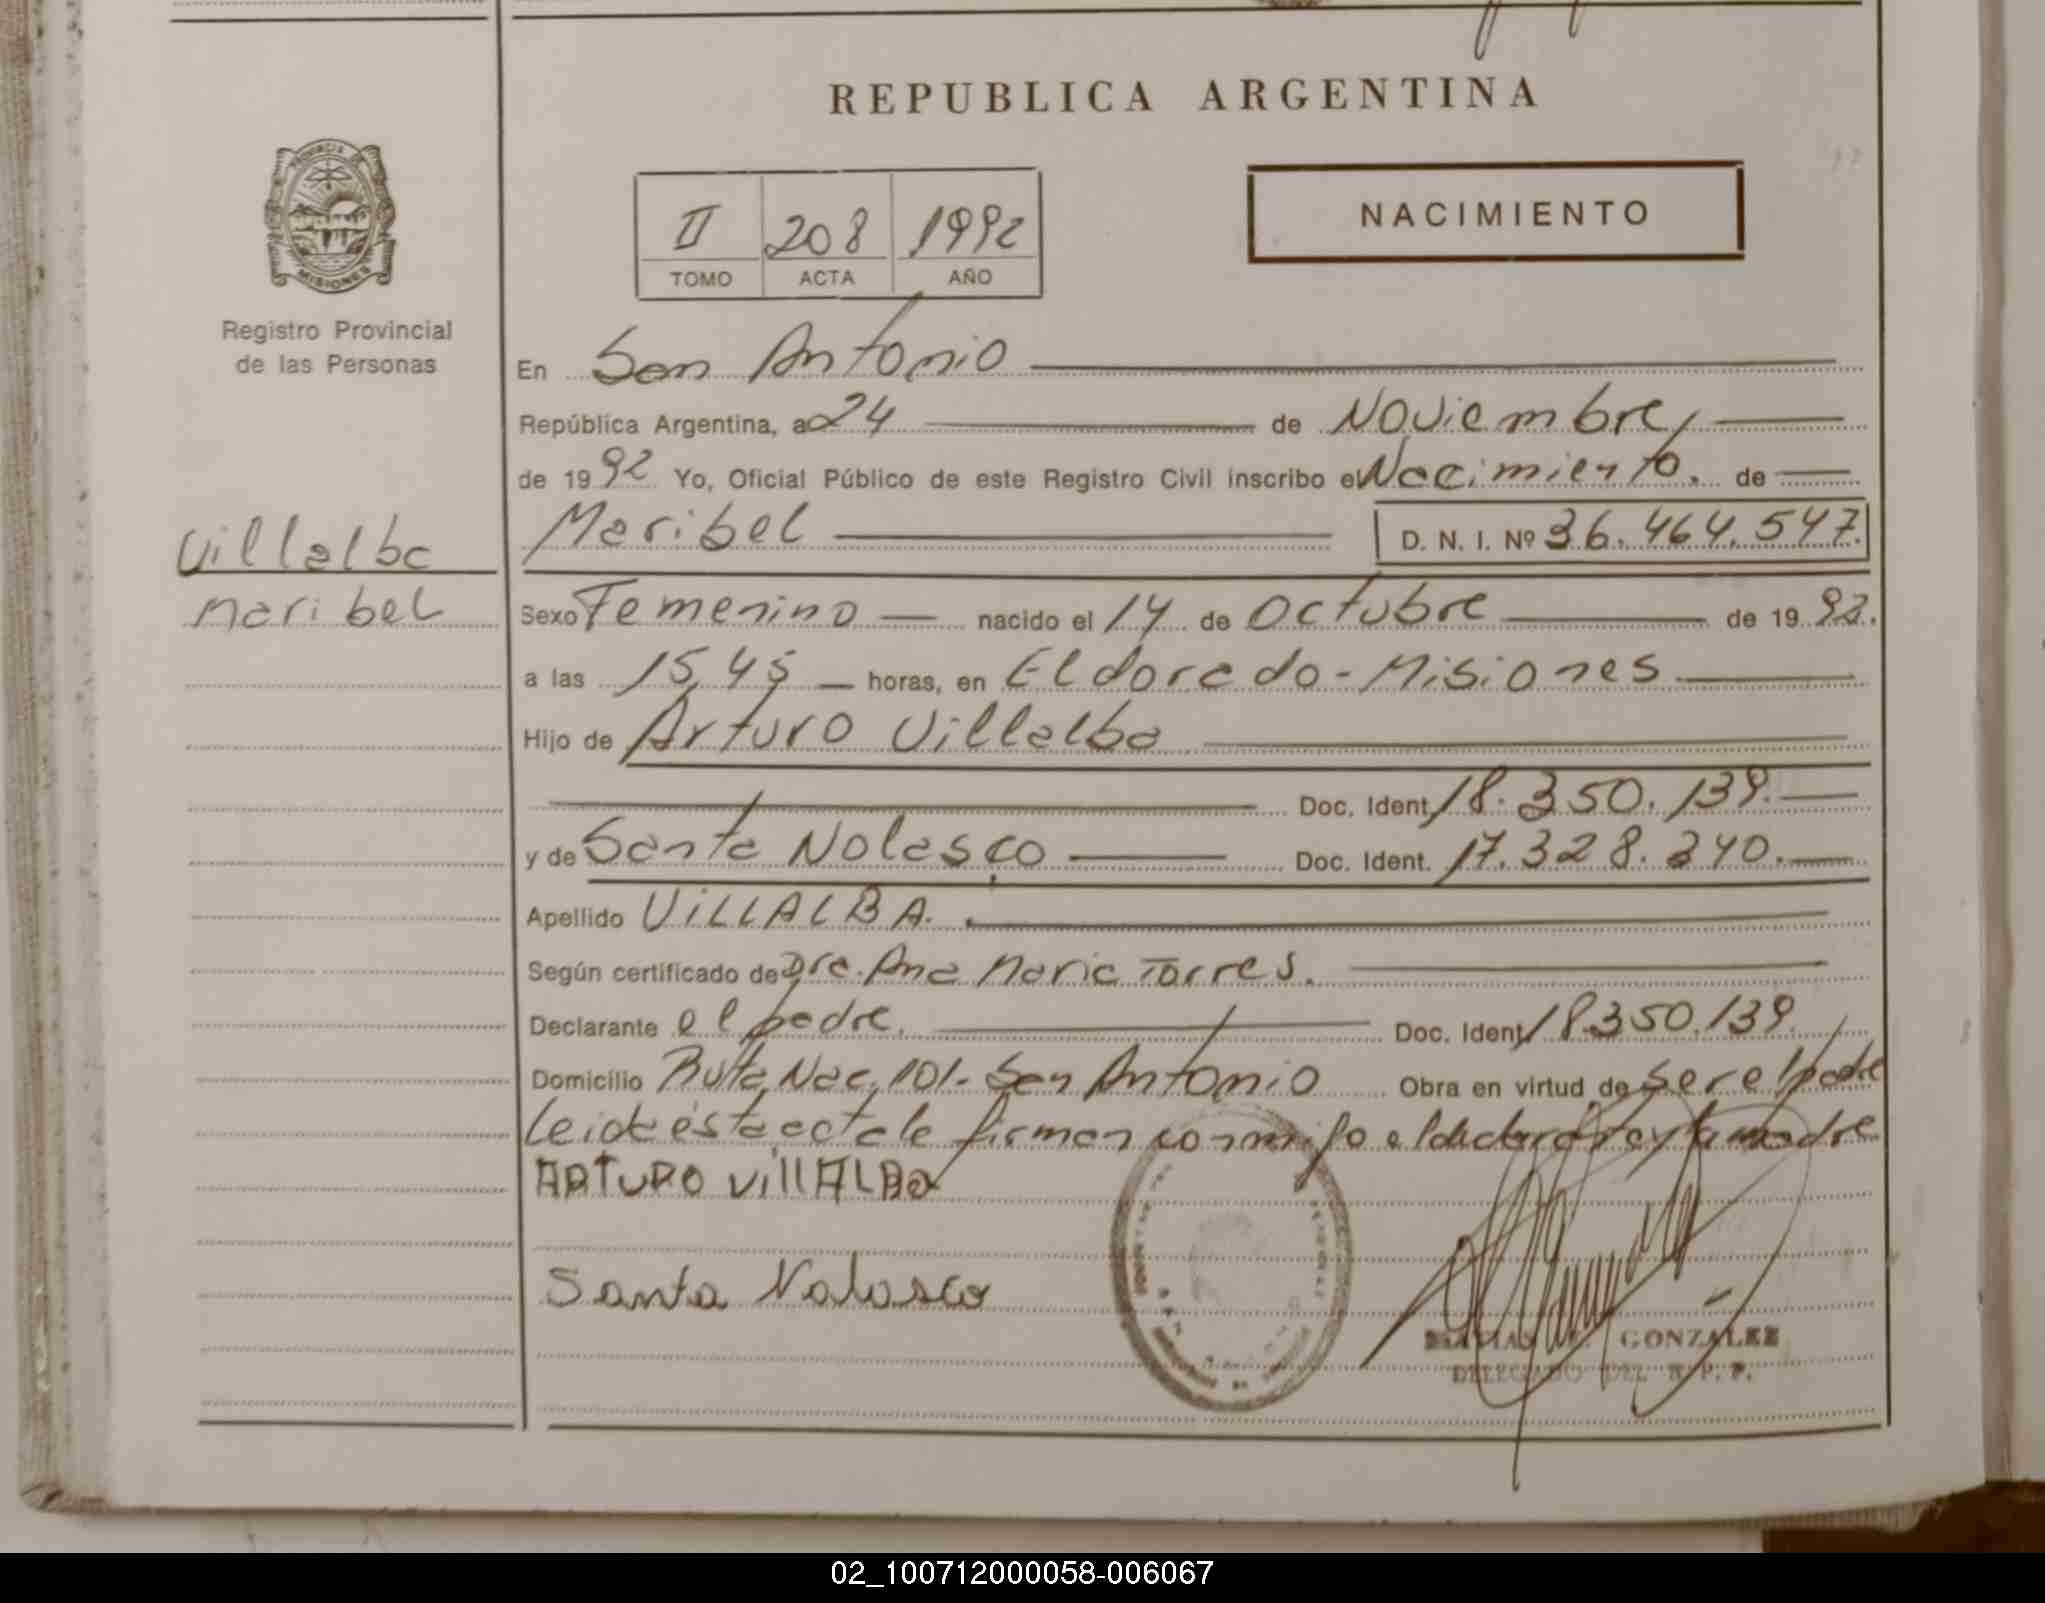 REPUBLICA ARGENTINA
PROVINCIA DE
MISIONES
Registro Provincial
de las Personas
II 208 1992
TOMO ACTA AÑO
NACIMIENTO
En San Antonio
República Argentina, a 24 de Noviembre,
de 1992 Yo, Oficial Público de este Registro Civil inscribo el Nacimiento. de
Villalba
Maribel
Maribel D. N. I. Nº 36.464.547.
Sexo Femenino nacido el 14 de Octubre de 1992.
a las 15,45 horas, en Eldorado - Misiones
Hijo de Arturo Villalba
Doc. Ident. 18.350.139.
y de Santa Nolasco Doc. Ident. 17.328.240.
Apellido VILLALBA.
Según certificado de Dra. Ana Maria Torres.
Declarante el padre. Doc. Ident. 18.350.139.
Domicilio Ruta Nac. 101 - San Antonio Obra en virtud de ser el padre
Leida ésta acta la firman conmigo el declarante y la madre
ARTURO VillALBa
Santa Nolasco
GONZALEZ
DELEGADO DEL R.P.P.
02_100712000058-006067